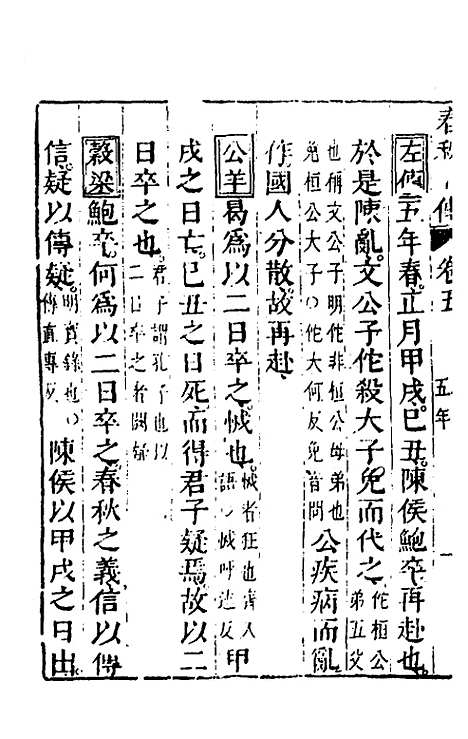 春秋 傳 卷五 五年 一
左傳五年春正月甲戌己丑陳侯鮑卒再赴也
於是陳亂文公子佗殺大子免而代之佗桓公
弟五父
也稱文公子明佗非桓公母弟也
免桓公大子○佗大何反免音問
公疾病而亂
作國人分散故再赴
公羊曷爲以二日卒之怴也怴者狂也齊人
語○怴呼述反
甲
戌之日亡己丑之日死而得君子疑焉故以二
日卒之也君子謂孔子也以
二日卒之者闕疑
穀梁鮑卒何爲以二日卒之春秋之義信以傳
信疑以傳疑明實錄也○
傳直專反
陳侯以甲戌之日出